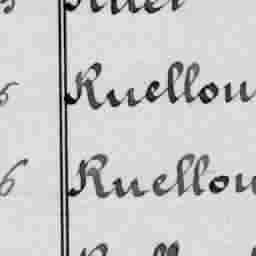 Ruellou
6 Ruellou